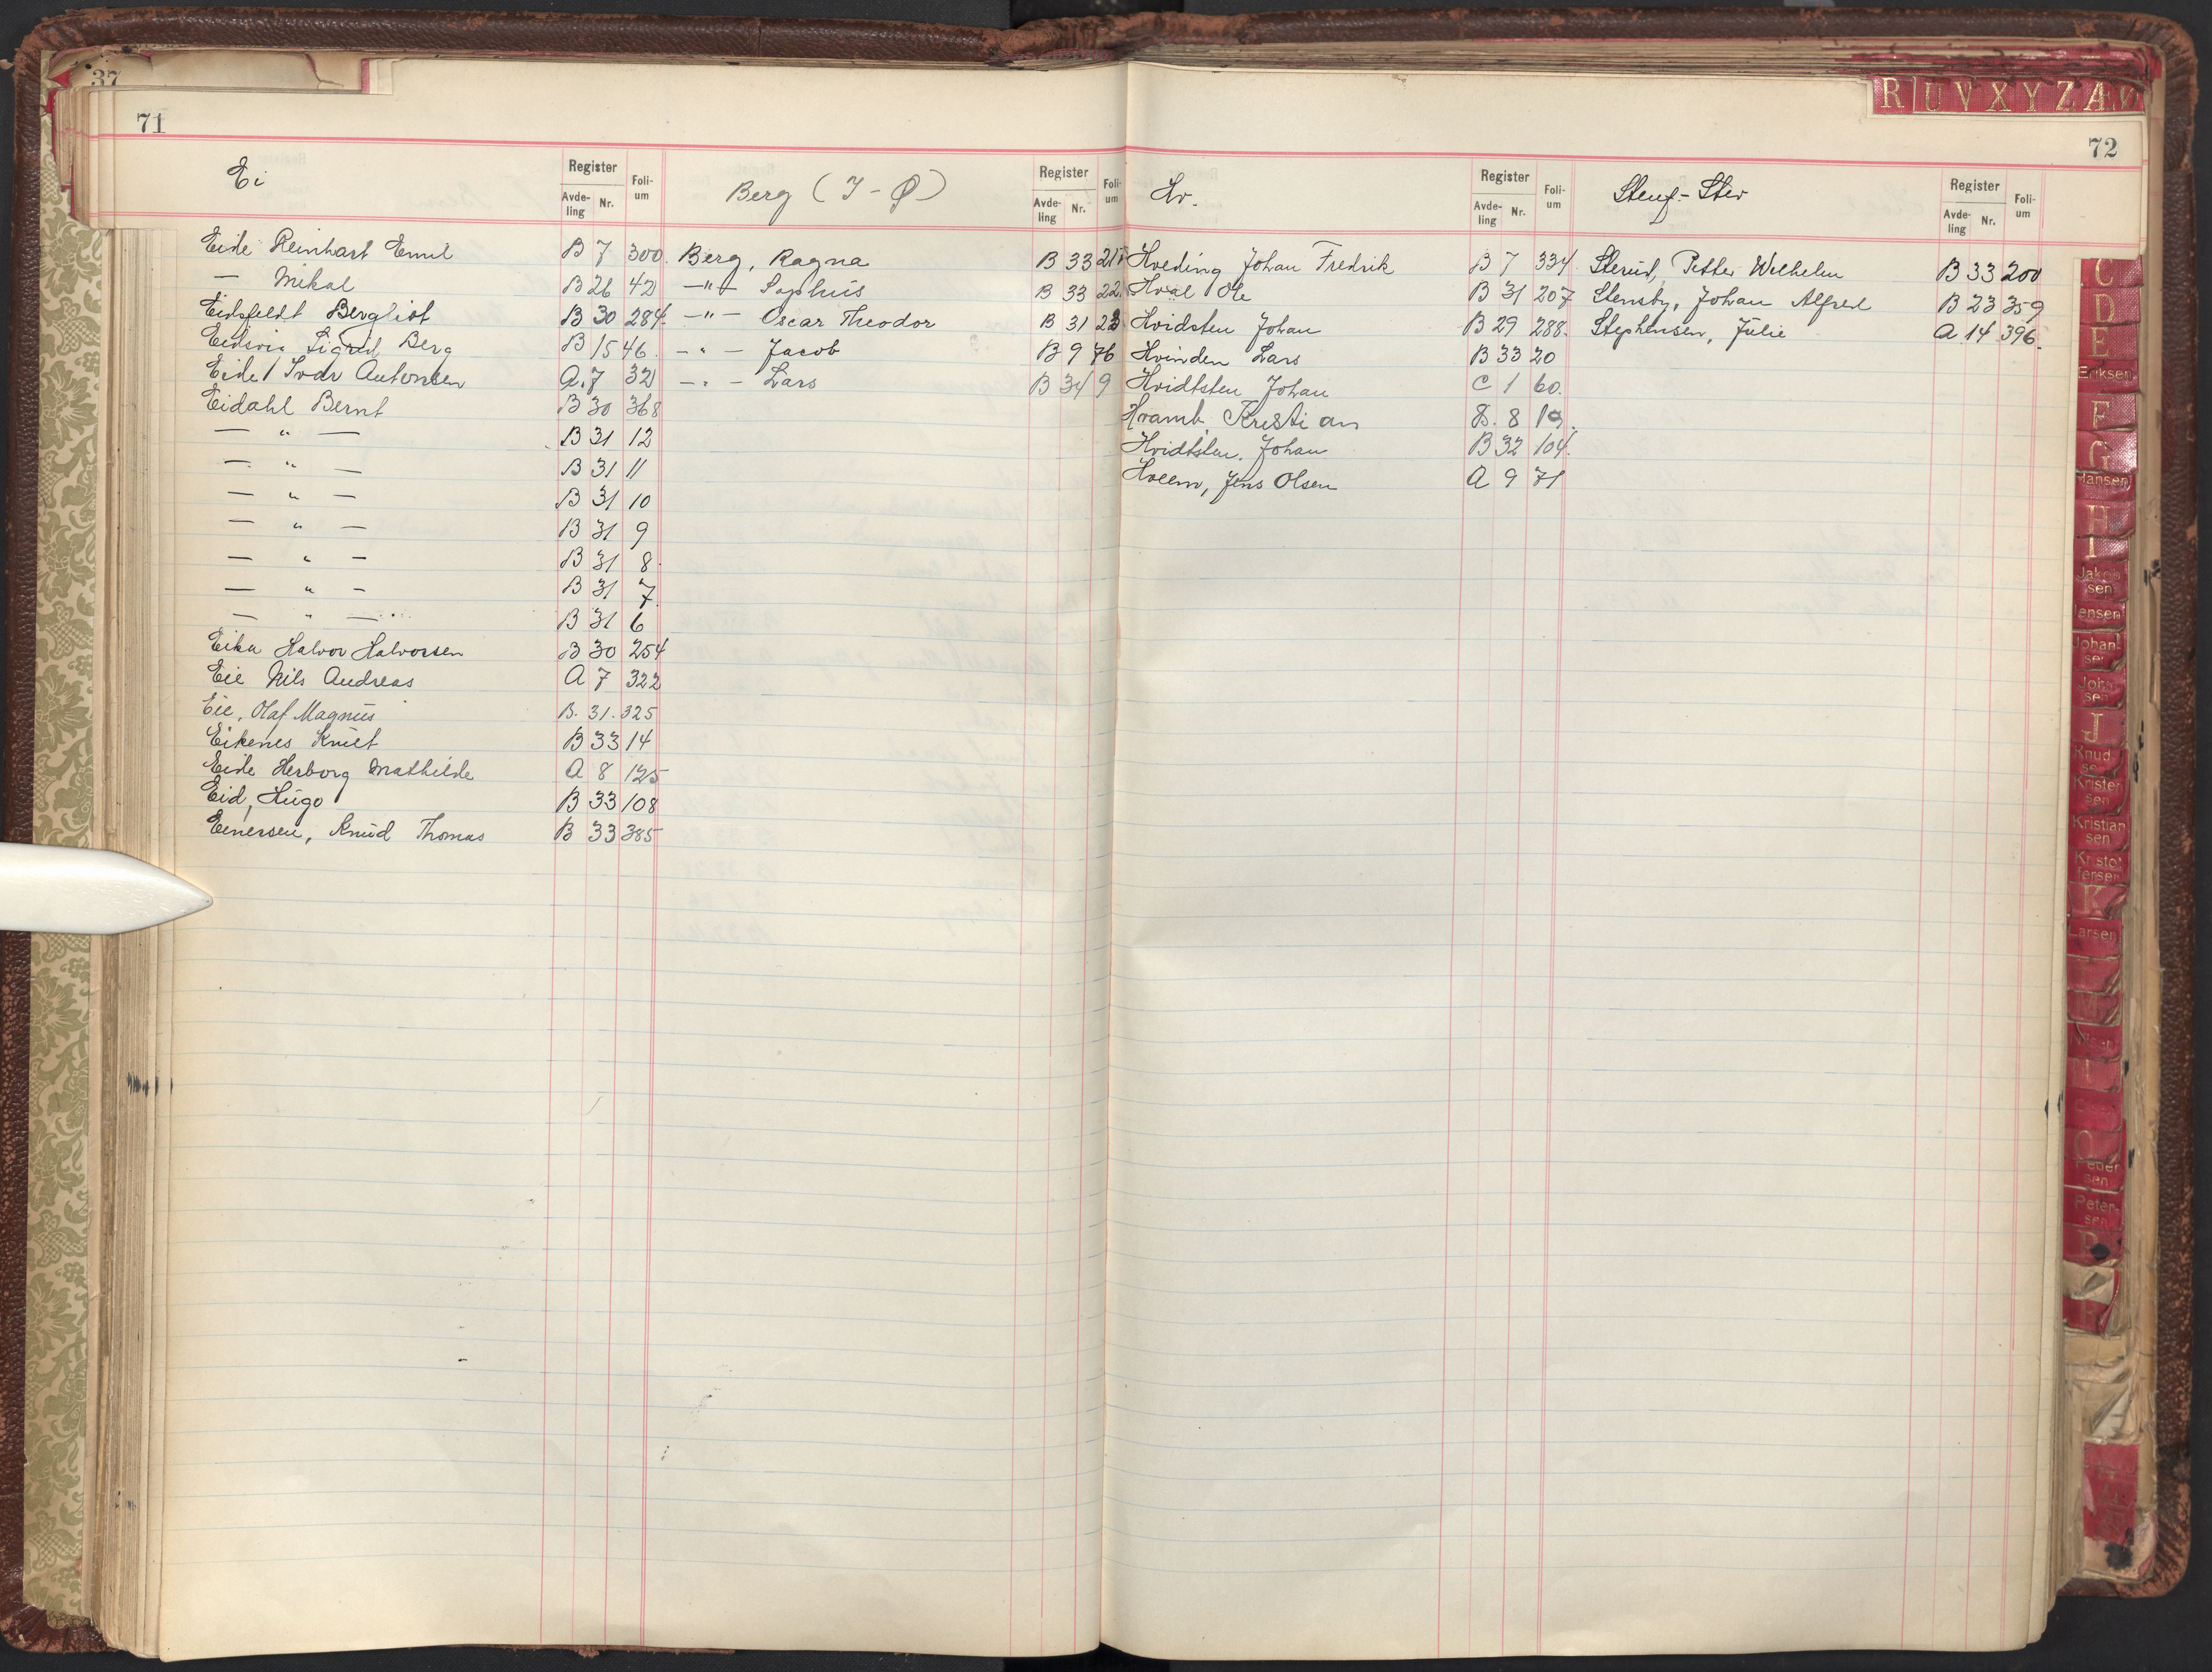 37
71
Ei
Register
Avde-
ling
Nr.
Foli-
um
Eide Reinhart Emil B 7 300.
— Mikal B 26 42
Eidsfeldt Bergliot B 30 284.
Eidsvig Sigrid Berg B 15 46.
Eide Ivar Antonsen A. 7 32
Eidahl Bernt B 30 368
— " — B 31 12
— " — B 31 11
— " — B 31 10
— " — B 31 9
— " — B 31 8.
— " — B 31 7.
— " — B 31 6
Eika Halvor Halvorsen B 30 254
Eie Nils Andreas A 7 322
Eie, Olaf Magnus B. 31. 325
Eikenes Knut B 33 14
Eide Herborg Mathilde A 8 125
Eid, Hugo B 33 108
Einersen, Knud Thomas B 33 385
Berg (I - Ø)
Register
Avde-
ling
Nr.
Foli-
um
Berg, Ragna B 33
— " — Sophus B 33 22
— " — Oscar Theodor B 31
— " — Jacob B 9 76
— " — Lars B 34 9
72
Hv.
Register
Avde-
ling
Nr.
Foli-
um
Hveding Johan Fredrik B 7 334
Hval Ole B 31 207
Hvidsten Johan B 29 288.
Hvinden Lars B 33 20
Hvidtsten Johan C 1 60.
Hvamb, Kristian B. 8 19.
Hvidtsten, Johan B 32 104.
Hveem, Jens Olsen A 9 71
Stenf - Stev
Register
Avde-
ling
Nr.
Foli-
um
Sterud, Petter Wilhelm B 33 200
Stensby, Johan Alfred B 23 359
Stephensen, Julie A 14 396.
R U V X Y Z Æ Ø
C
D
E
Eriksen
F
G
Hansen
H
I
Jakob
sen
Jensen
Johan
sen
John
sen
J
Knud
sen
Kristen
sen
Kristian
sen
Kristof
fersen
K
Larsen
N
O
Peder
sen
Peter
sen
P
R